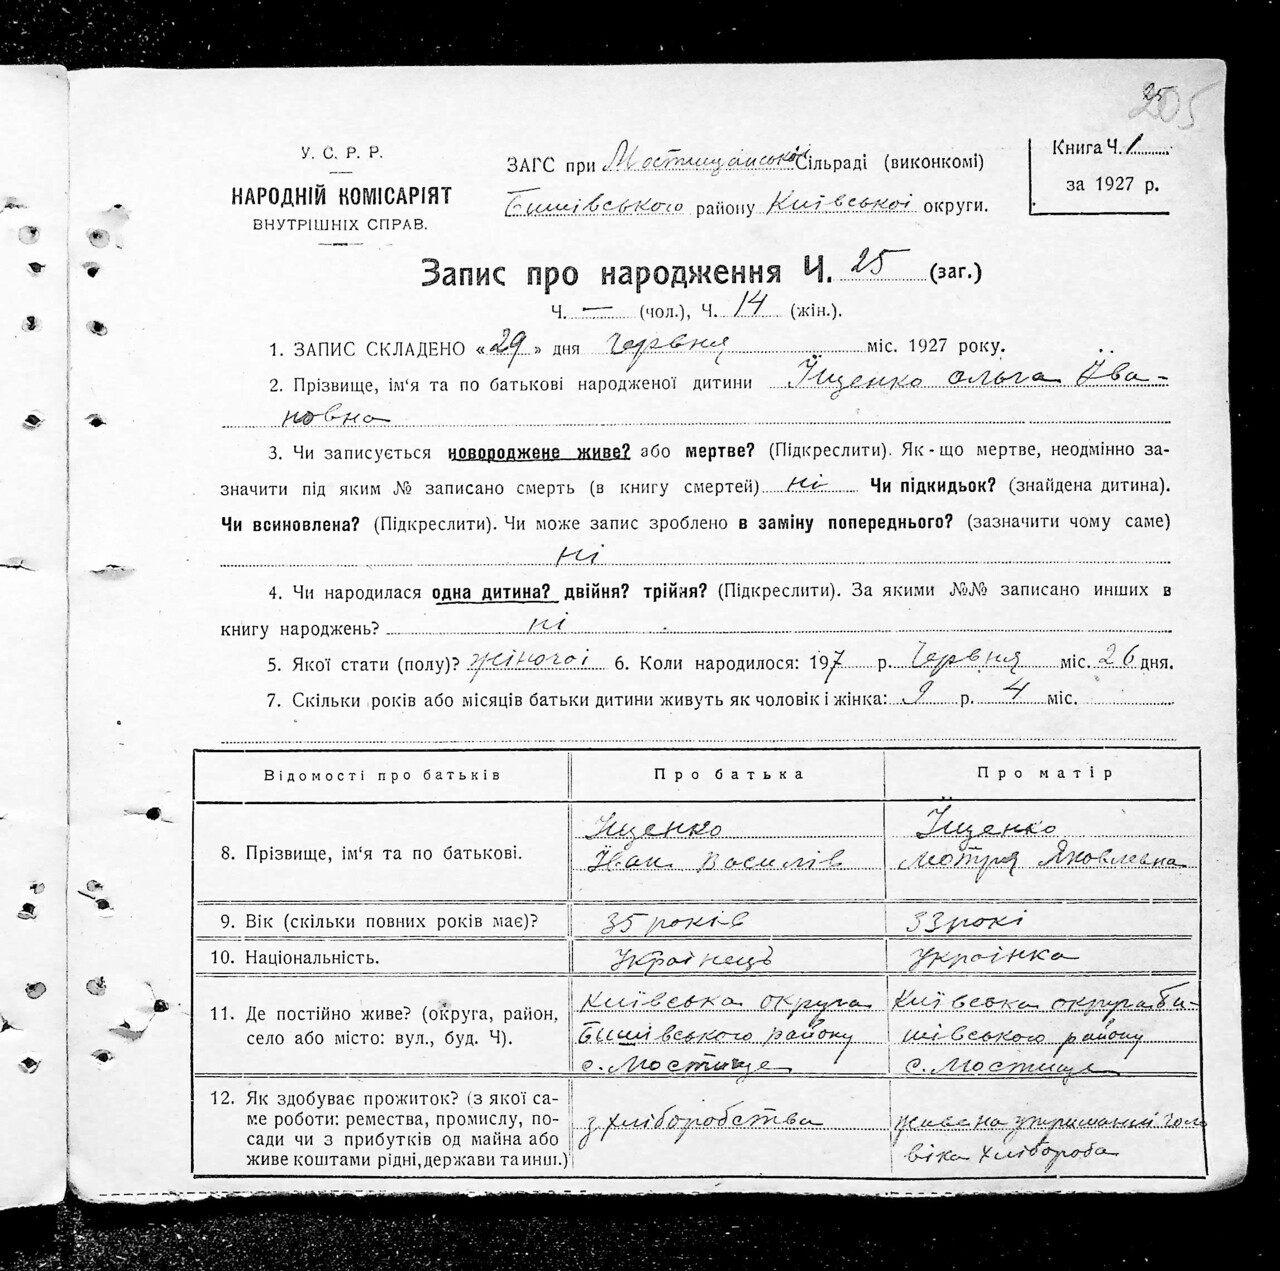 25
205
У. С. Р. Р.
НАРОДНІЙ КОМІСАРІЯТ
ВНУТРІШНІХ СПРАВ.
ЗАГС при Мостищанської Сільраді (виконкомі)
Бишівського району Київської округи.
Книга Ч. 1
за 1927 р.
Запис про народження Ч. 25 (заг.)
Ч. — (чол.), Ч. 14 (жін.).
1. ЗАПИС СКЛАДЕНО «29» дня Червня міс. 1927 року.
2. Прізвище, ім'я та по батькові народженої дитини Їщенко Ольга Їва-
новна
3. Чи записується новороджене живе? або мертве? (Підкреслити). Як-що мертве, неодмінно за-
значити під яким № записано смерть (в книгу смертей) ні Чи підкидьок? (знайдена дитина).
Чи всиновлена? (Підкреслити). Чи може запис зроблено в заміну попереднього? (зазначити чому саме)
ні
4. Чи народилася одна дитина? двійня? трійня? (Підкреслити). За якими №№ записано инших в
книгу народжень? ні
5. Якої стати (полу)? жіночої 6. Коли народилося: 197 р. Червня міс. 26 дня.
7. Скільки років або місяців батьки дитини живуть як чоловік і жінка: 9 р. 4 міс.
Відомості про батьків
Про батька
Про матір
8. Прізвище, ім'я та по батькові.
Іщенко
Їван Василів
Їщенко
Мотря Яковлевна
9. Вік (скільки повних років має)?
35 років
33 рокі
10. Національність.
Українець
Українка
11. Де постійно живе? (округа, район,
село або місто: вул., буд. Ч).
Київська округа
Бишівського району
с. Мостище
Київська округа Би-
шівського району
с. Мостище
12. Як здобуває прожиток? (з якої са-
ме роботи: ремества, промислу, по-
сади чи з прибутків од майна або
живе коштами рідні, держави та инш.)
з хліборобства
живе на утриманні чоло
віка хлібороба